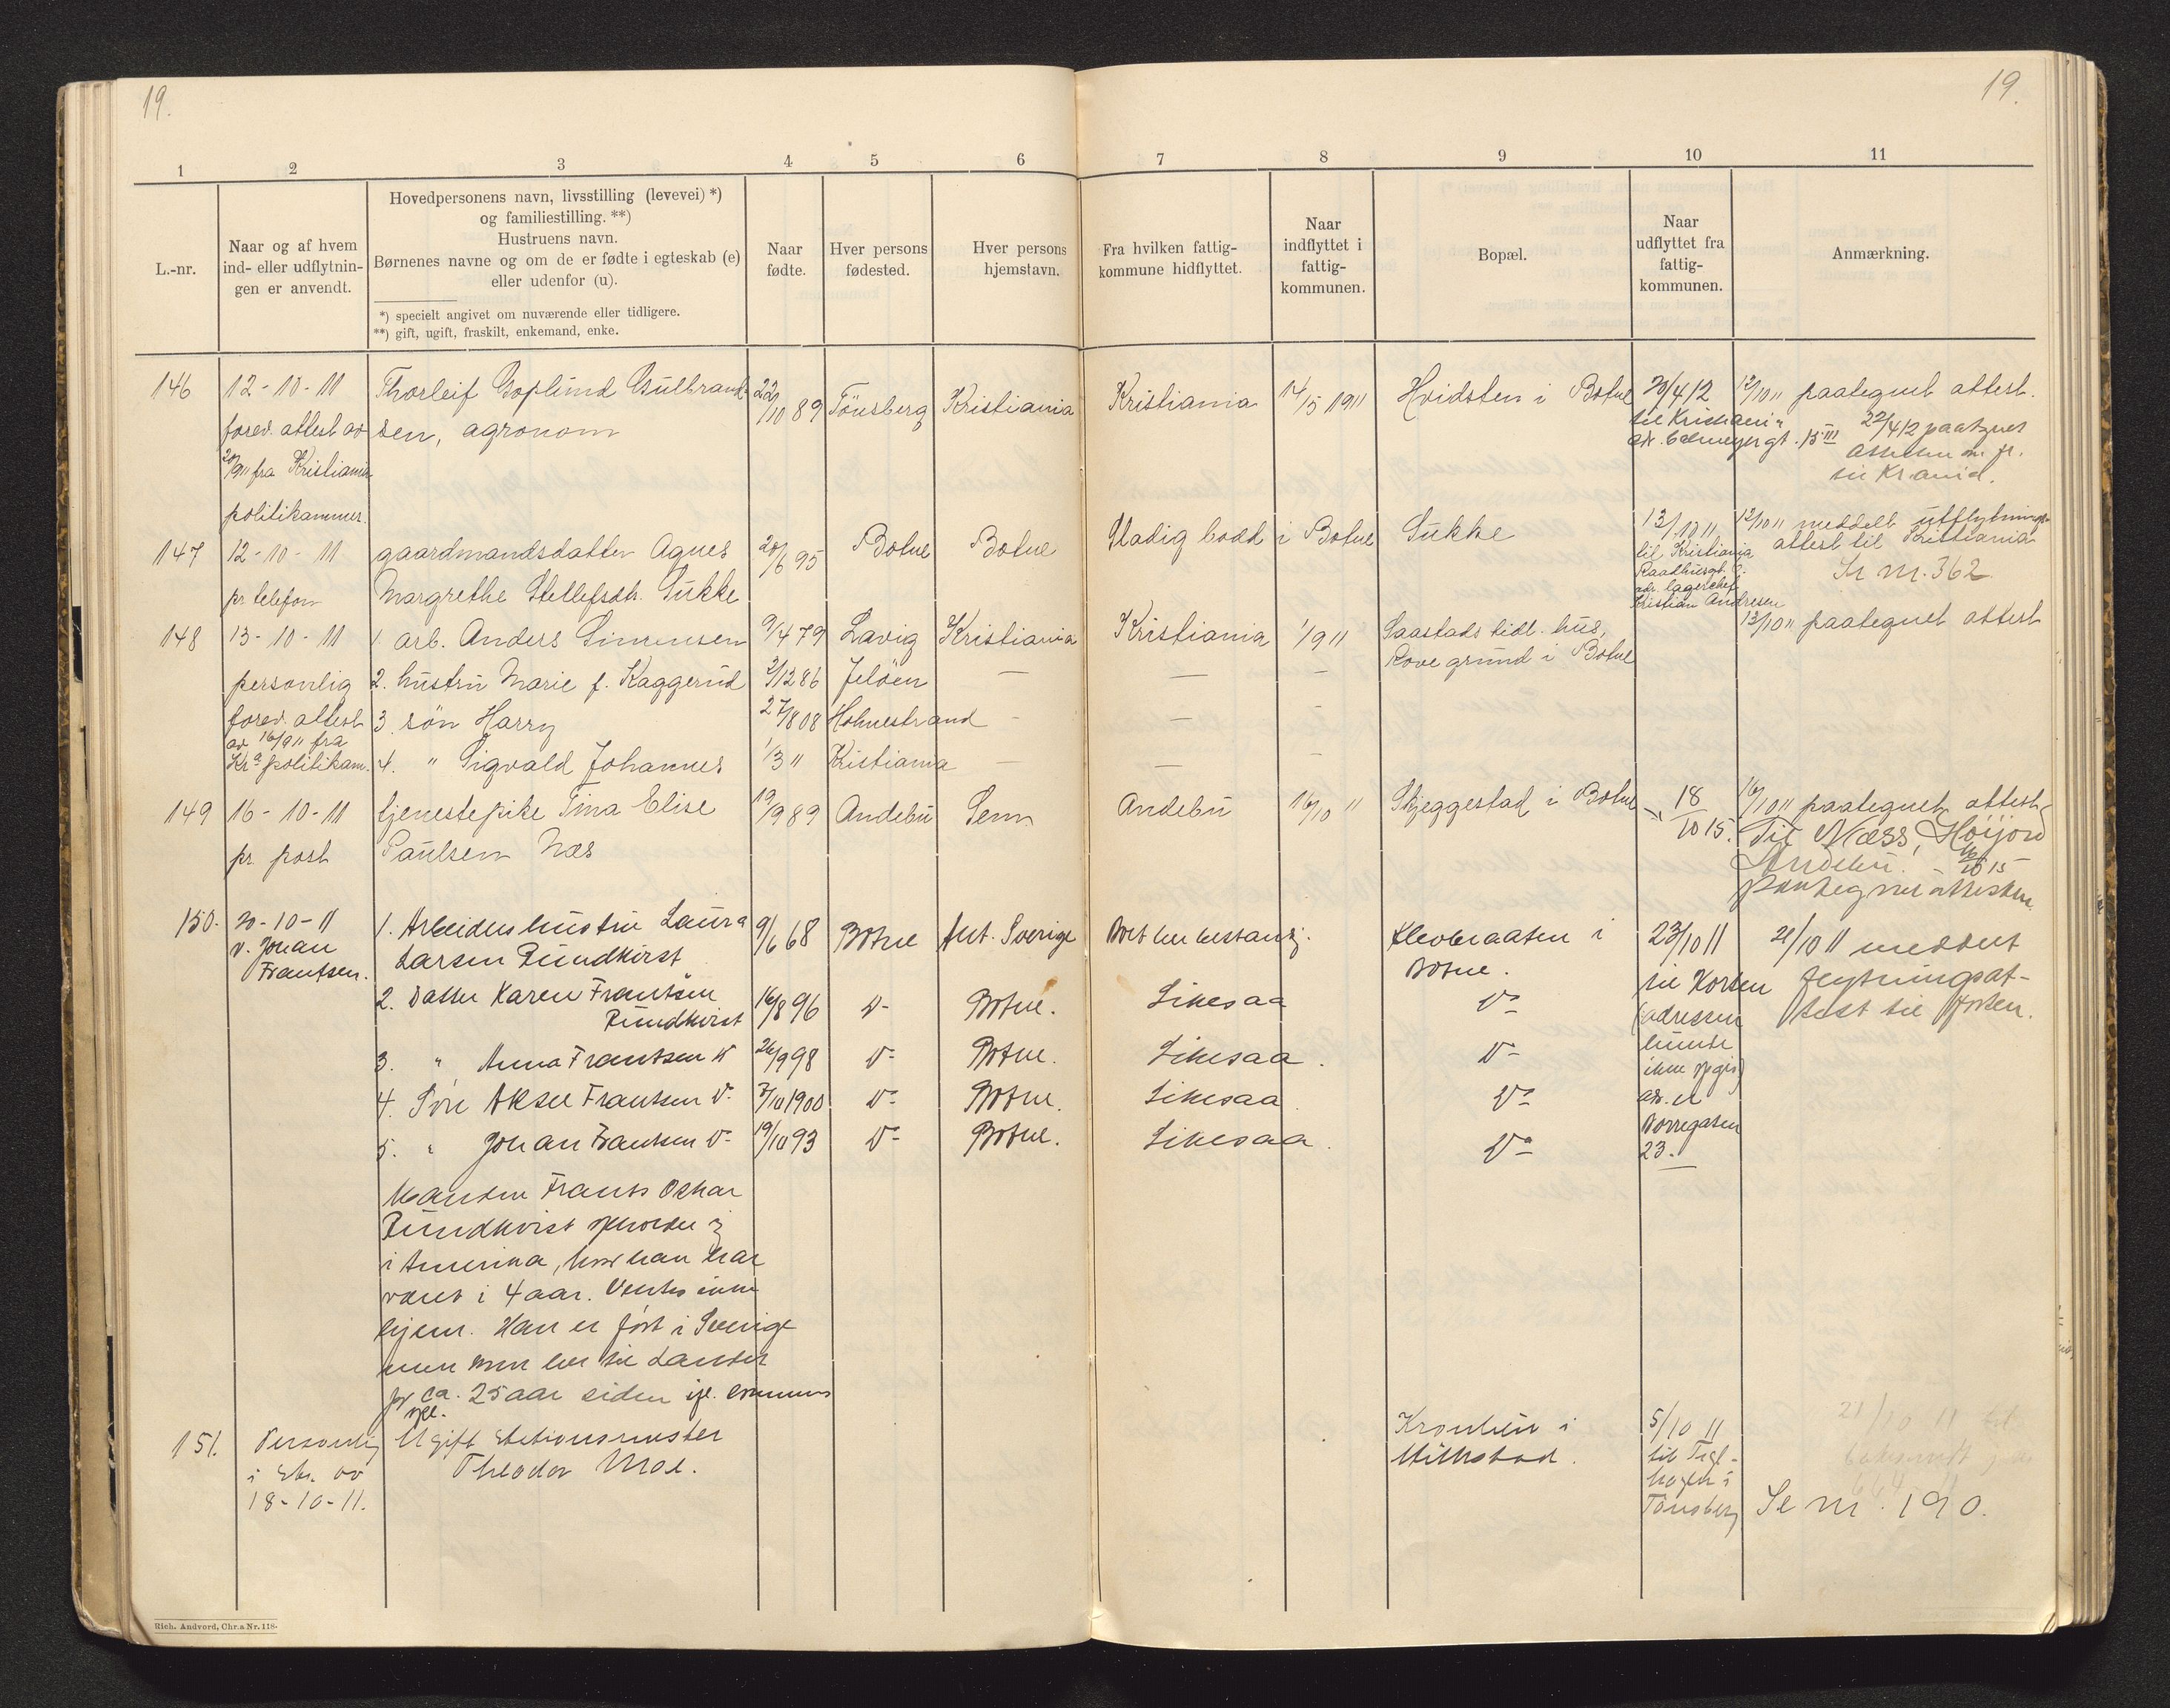 19.
19.
1 2 3 4 5 6 7 8 9 10 11
L.-nr.
Naar og af hvem
ind- eller udflytnin-
gen er anvendt.
Hovedpersonens navn, livsstilling (levevei) *)
og familiestilling. **)
Hustruens navn.
Børnenes navne og om de er fødte i egteskab (e)
eller udenfor (u).
*) specielt angivet om nuværende eller tidligere.
**) gift, ugift, fraskilt, enkemand, enke.
Naar
fødte.
Hver persons
fødested.
Hver persons
hjemstavn.
Fra hvilken fattig-
kommune hidflyttet.
Naar
indflyttet i
fattig-
kommunen.
Bopæl.
Naar
udflyttet fra
fattig-
kommunen.
Anmærkning.
146
12-10-11
forev. attest av
20/9 11 fra Kristiania
politikammer.
Thorleif Goplund Gulbrand-
sen, agronom
22/10 89
Tönsberg
Kristiania
Kristiania
14/5 1911
Hvidsten i Botne
20/4 12
til Kristiania
15 III
12/10 11 paategnet attest.
22/4 12 paategnet
147
12-10-11
pr telefon
gaardmandsdatter Agnes
Margrethe Stellefsdtr. Sukke
20/6 95
Botne
Botne
Stadig bodd i Botne
Sukke
13/10 11
til Kristiania
Raadhusgt.
adr. lagerchef
Kristian Andresen
12/10 11 meddelt utflytnings-
attest til Kristiania
Se nr. 362
148
13-10-11
personlig
forev. attest
av 16/9 11 fra
Kra politikam.
1. arb. Anders Simensen
9/4 79
Lavig
Kristiania
Kristiania
1/9 11
Saastads tidl. hus,
Rove grund i Botne
13/10 11 paategnet attest
2. hustru Marie f. Kaggerud
2/12 86
Jelöen
—
—
—
3. sön Harry
27/8 08
Holmestrand
—
—
—
4. " Sigvald Johannes
1/3 11
Kristiania
—
—
—
149
16-10-11
pr. post
tjenestepike Tina Elise
Paulsen Næs
19/9 89
Andebu
Sem
Andebu
16/10 11
Skjeggestad i Botne
18/10 15.
16/10 11 paategnet attest
Til Næss, Höijord
Andebu. 16/10 15
paategnet attesten.
150.
20-10-11
v. Johan
Frantsen.
1. Arbeiderhustru Laura
Larsen Rundkvist
9/6 68
Botne
Ant. Sverige
Boet her bestandig.
Klevbraaten i
Botne.
23/10 11
til Horten
(adressen
kunde
ikke opgis)
adr. er
Norregaten
23.
21/10 11 meddelt
flytningsat-
test til Horten.
2. Datter Karen Frantsen
Rundkvist
16/8 96
Do
Botne.
Likesaa
Do
3. " Anna Frantsen R
26/9 98
Do
Botne.
Likesaa.
Do
4. Sön Aksel Frantsen Do
7/10 1900
Do
Botne.
Likesaa.
Do
5. " Johan Frantsen Do
19/10 93
Do
Botne.
Likesaa.
Do
Manden Frants Oskar
Rundkvist opholder sig
i Amerika, hvor han har
været i 4 aar. Ventes ikke
hjem. Han er föt i Sverige
men kom her til Landet
for ca. 25 aar siden
151.
Personlig
i av
18-10-11.
Ugift Stationsmester
Theodor Moe.
Kronlien i
Hillestad.
5/10 11
til Tegl-
hagen i
Tönsberg
21/10 11
Se nr. 190.
Rich. Andvord, Chr.a Nr. 118.